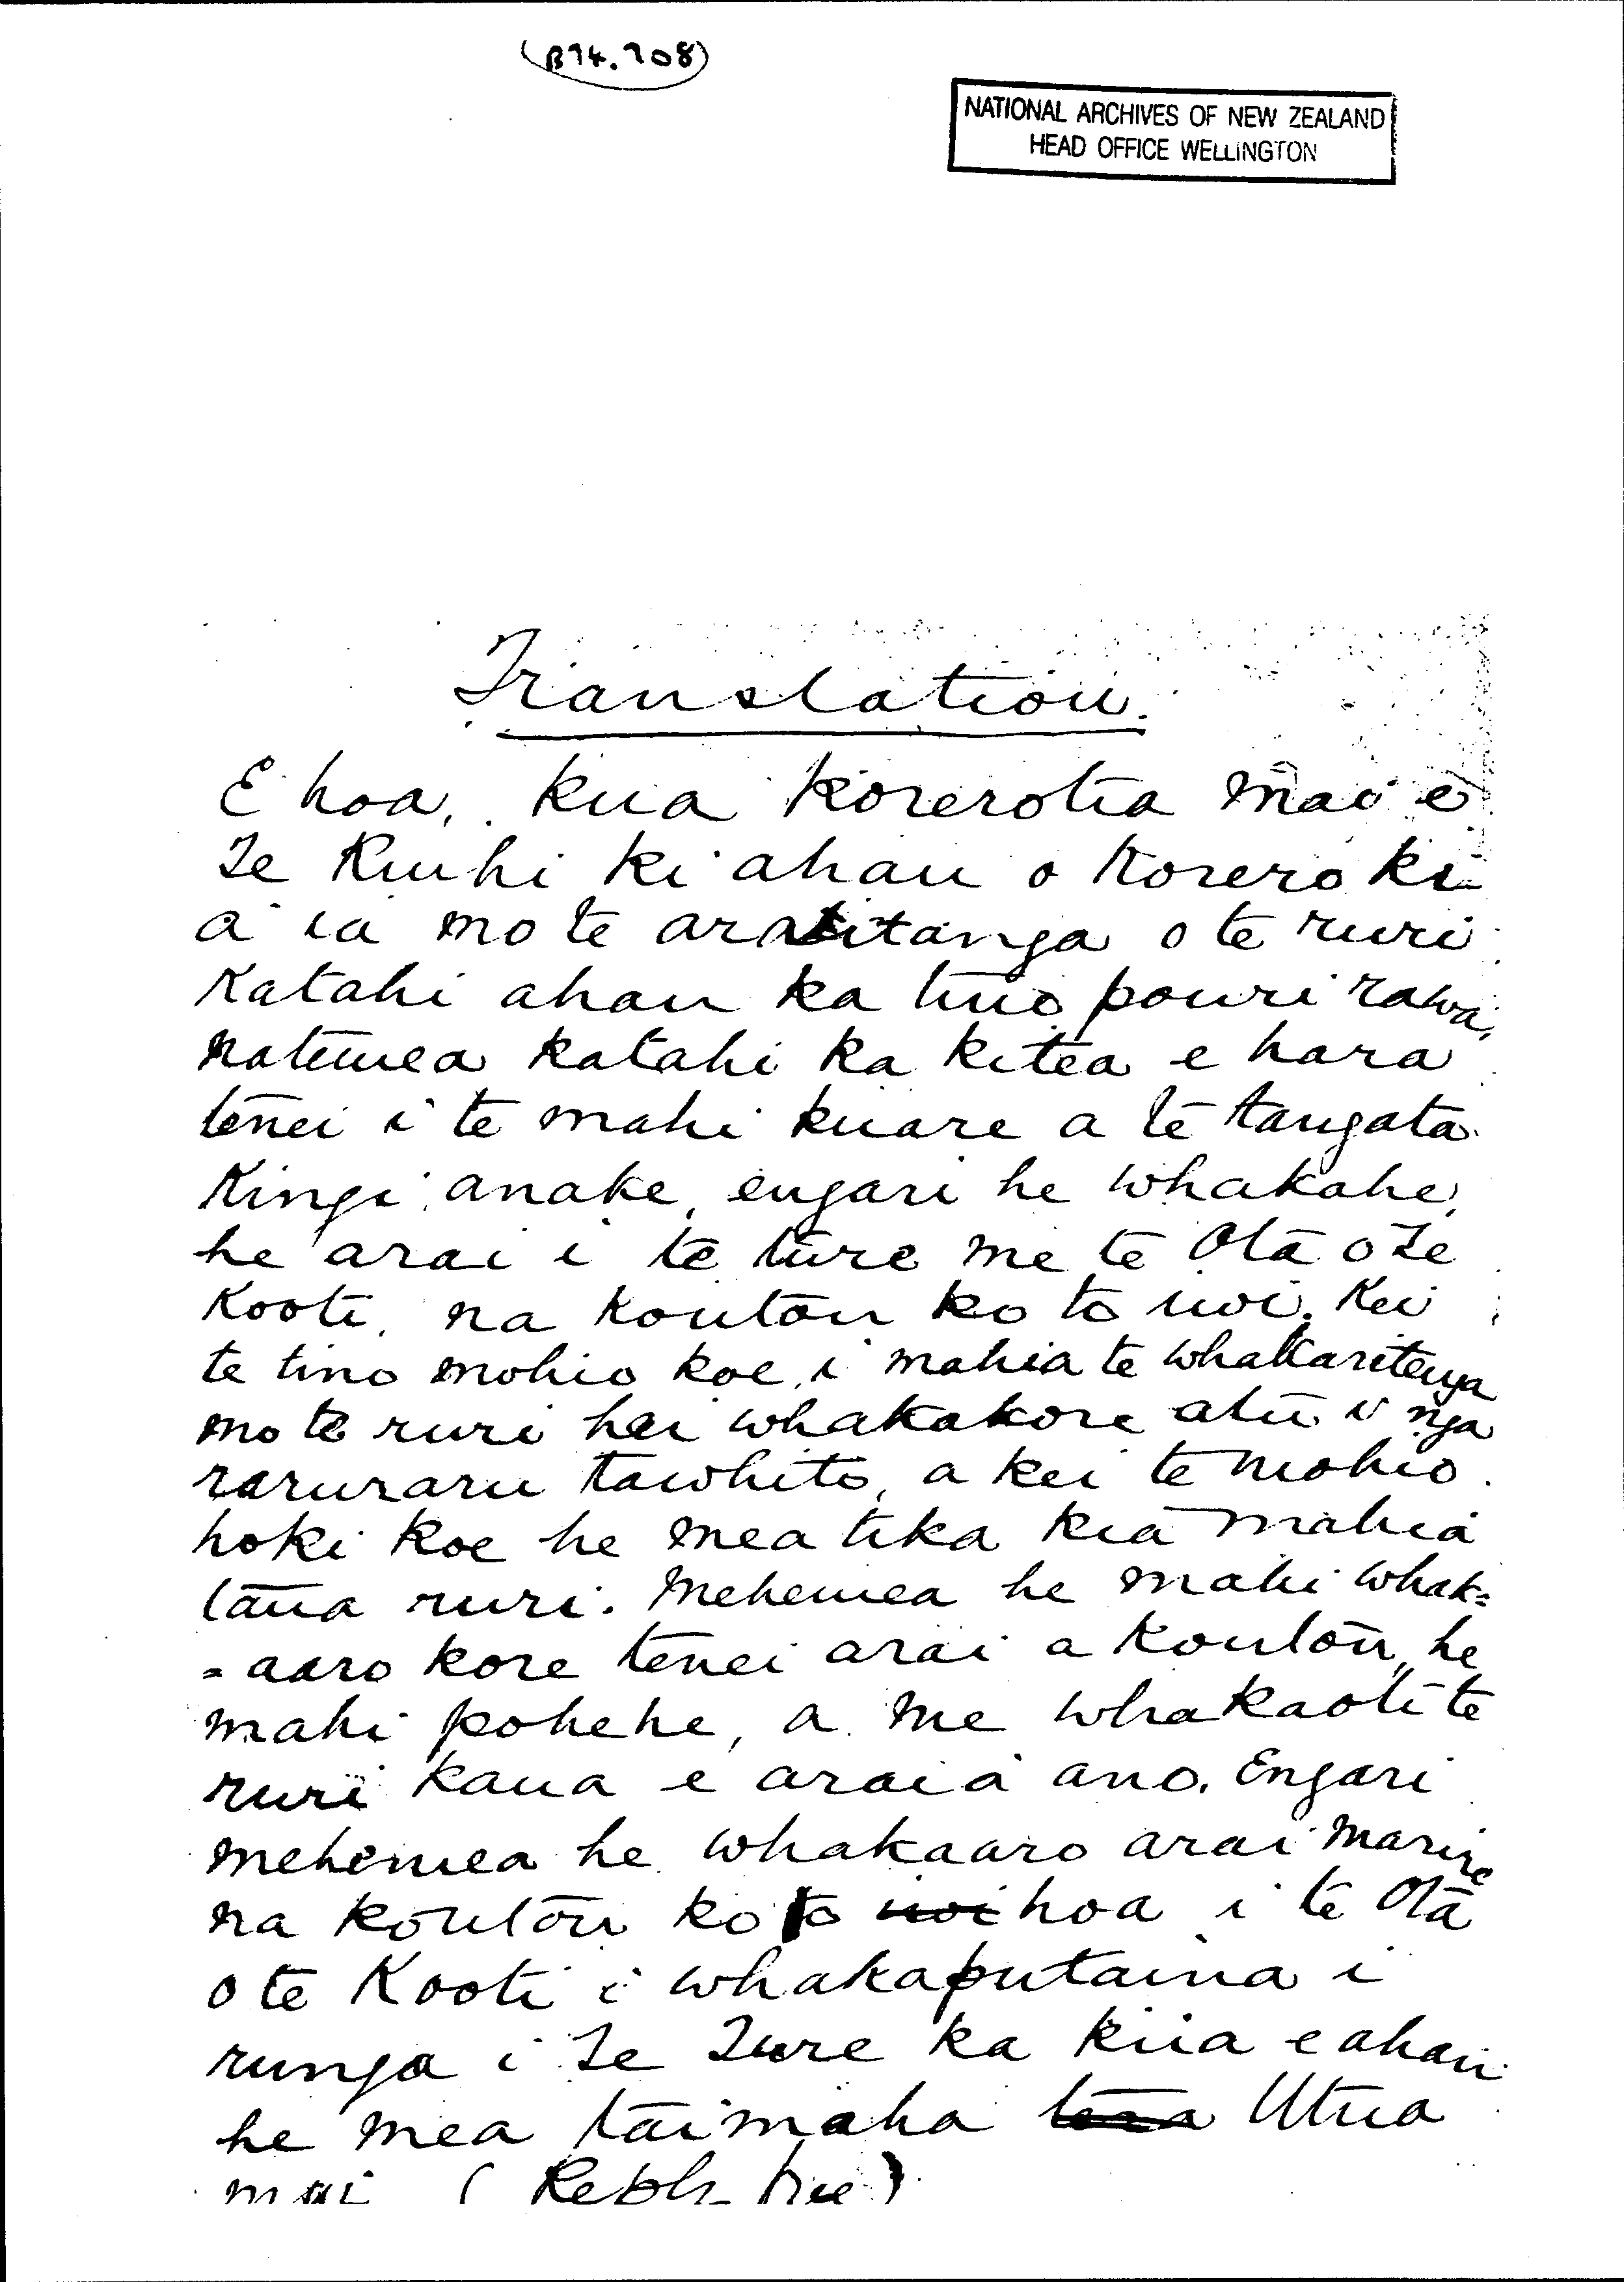 (B94.708)
NATIONAL ARCHIVES OF NEW ZEALAND
HEAD OFFICE WELLINGTON
Translation.
E hoa, kua korerotia mai e
Te Ruihi ki ahau o korero ki
a ia mo te araitanga o te ruri
Katahi ahau ka tino pouri rawa,
notemea katahi ka kitea e hara
tenei i te mahi kuare a te tangata
Kingi anake, engari he whakahe,
he arai i te ture me te Ota o Te
Kooti, na koutou ko to iwi. Kei
te tino mohio koe, i mahia te whakaritenga
mo te ruri hei whakakore atu i nga
raruraru tawhito, a kei te mohio
hoki koe he mea tika kia mahia
taua ruri. Mehemea he mahi whak=
=aaro kore tenei arai a koutou, he
mahi pohehe, a me whakaoti te
ruri kaua e araia ano. Engari
mehemea he whakaaro arai marire
na koutou ko to iwi hoa i te Ota
o te Kooti i whakaputaina i
runga i Te Ture ka kiia e ahau
he mea taimaha tera Utua
mai (Reply free)